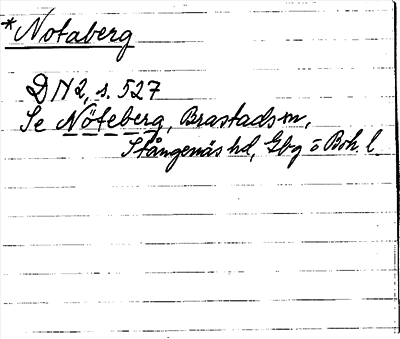 *Notaberg
DN 2, s. 527
Se Nöteberg, Brastads sn,
Stångenäs hd, Gbg o Boh. l